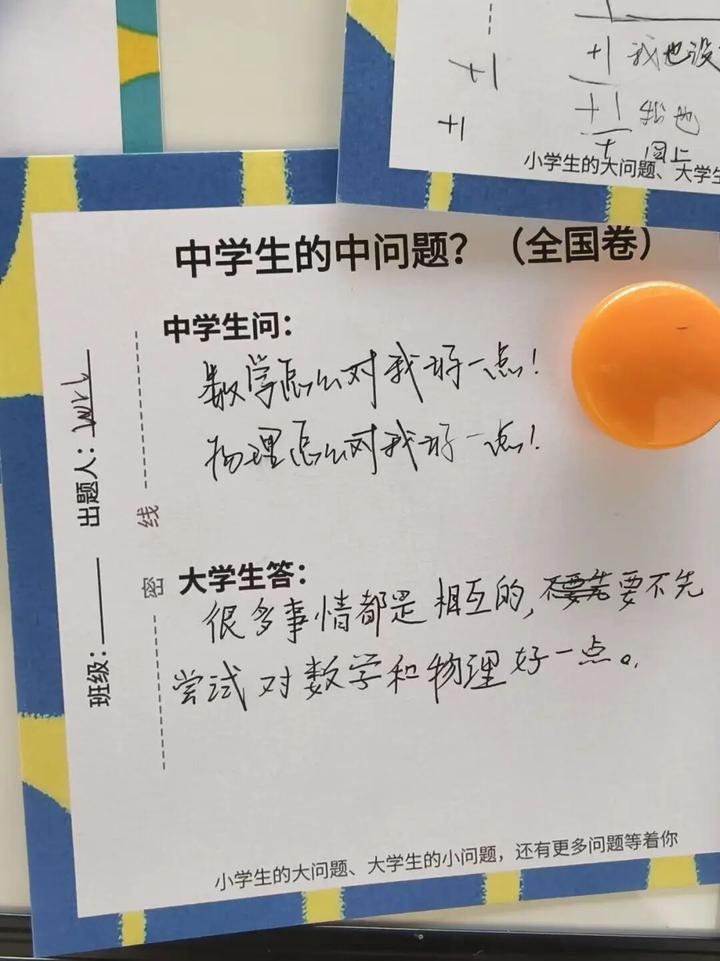 +1 我也没
+1
+1 我也
+1
+ 图上
小学生的大问题、大学生
中学生的中问题？（全国卷）
中学生问：
数学怎么对我好一点！
物理怎么对我好一点！
大学生答：
很多事情都是相互的，不要先要不先
尝试对数学和物理好一点。
小学生的大问题、大学生的小问题，还有更多问题等着你
班级：
出题人：
密
线